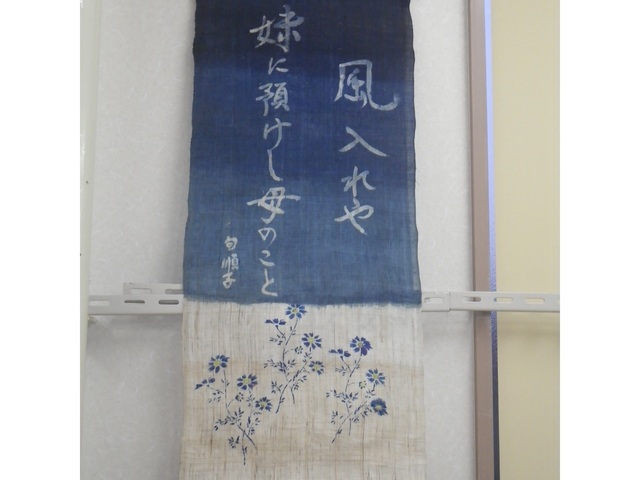 風入れや
妹に預けし母のこと
句順子